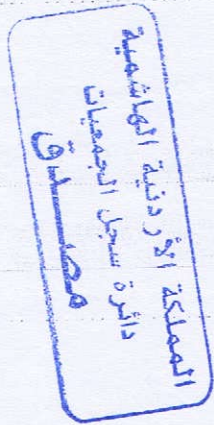 المملكة الأردنية الهاشمية
دائرة سجل الجمعيات
مصدق